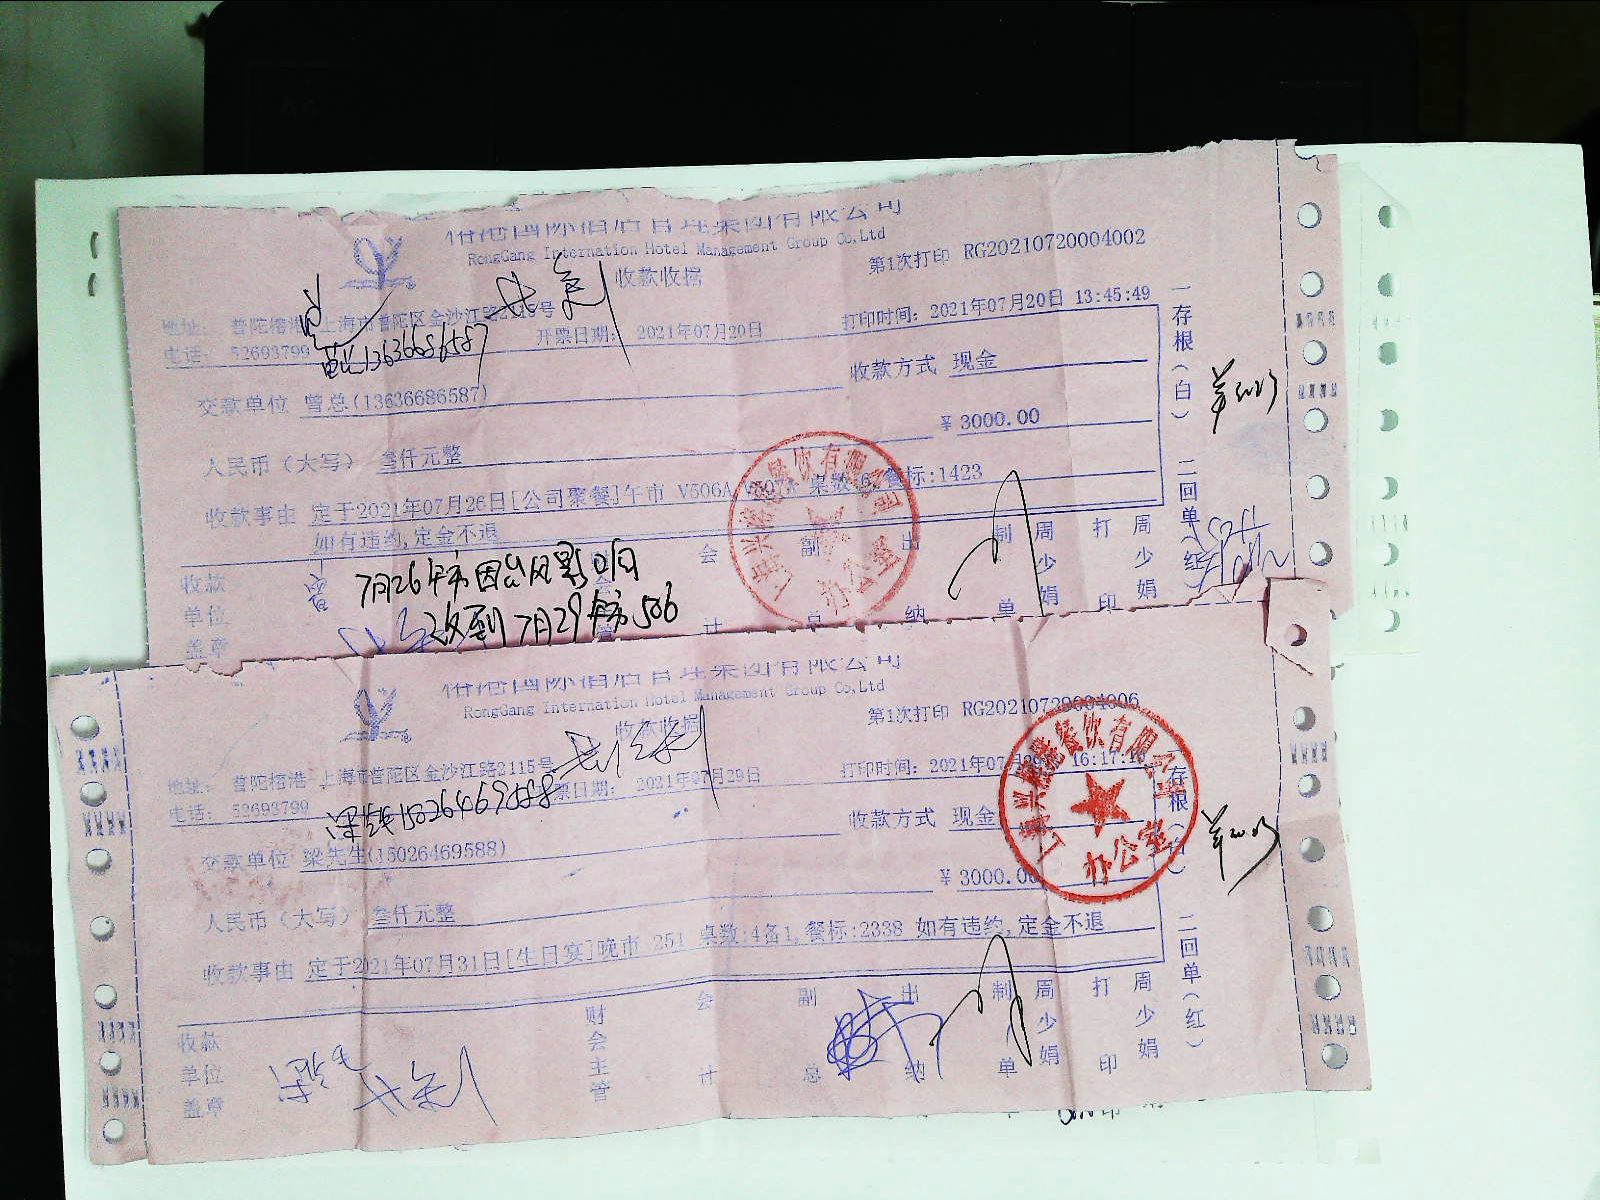 榕港国际酒店管理集团有限公司
RongGang Internation Hotel Management Group Co,Ltd
收款收据
第1次打印 RG20210720004002
地址: 普陀榕港 上海市普陀区金沙江路2115号
电话: 52693799
13636686587
开票日期: 2021年07月20日
打印时间: 2021年07月20日 13:45:49
交款单位 曾总(13636686587)
收款方式 现金
人民币(大写) 叁仟元整
¥ 3000.00
收款事由 定于2021年07月26日[公司聚餐]午市 V506A 桌数 餐标:1423
如有违约,定金不退
收款单位盖章
会计
副总
出纳
制单
周少娟
打印
周少娟
一存根(白)
二回单(红)
7月26午市因台风影响
改到7月29 506
办公室
榕港国际酒店管理集团有限公司
RongGang Internation Hotel Management Group Co,Ltd
收款收据
第1次打印 RG20210729004006
地址: 普陀榕港 上海市普陀区金沙江路2115号
电话: 52693799
15026469588
开票日期: 2021年07月29日
打印时间: 2021年07月29日 16:17:1
交款单位 梁先生(15026469588)
收款方式 现金
人民币(大写) 叁仟元整
¥ 3000.00
收款事由 定于2021年07月31日[生日宴]晚市 251 桌数:4备1,餐标:2338 如有违约,定金不退
收款单位盖章
财会主管
会计
副总
出纳
制单
周少娟
打印
周少娟
存根(白)
二回单(红)
餐饮有限公司
办公室